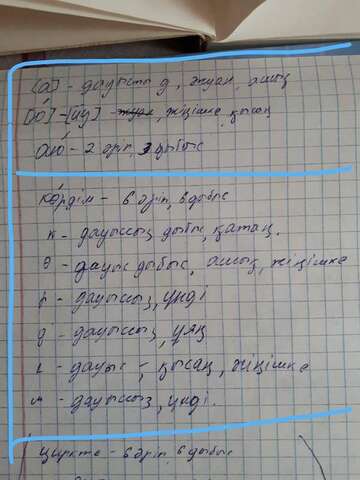 [а] - дауысты д, жуан, ашық
[ю] - [йү] - жуан, жіңішке, қысаң
аю - 2 әріп, 3 дыбыс
көрдім - 6 әріп, 6 дыбыс
к - дауыссыз дыбыс, қатаң.
ө - дауыс дыбыс, ашық, жіңішке
р - дауыссыз, үнді
д - дауыссыз, ұяң
і - дауыс -, қысаң, жіңішке
м - дауыссыз, үнді.
циркте - 6 әріп, 6 дыбыс